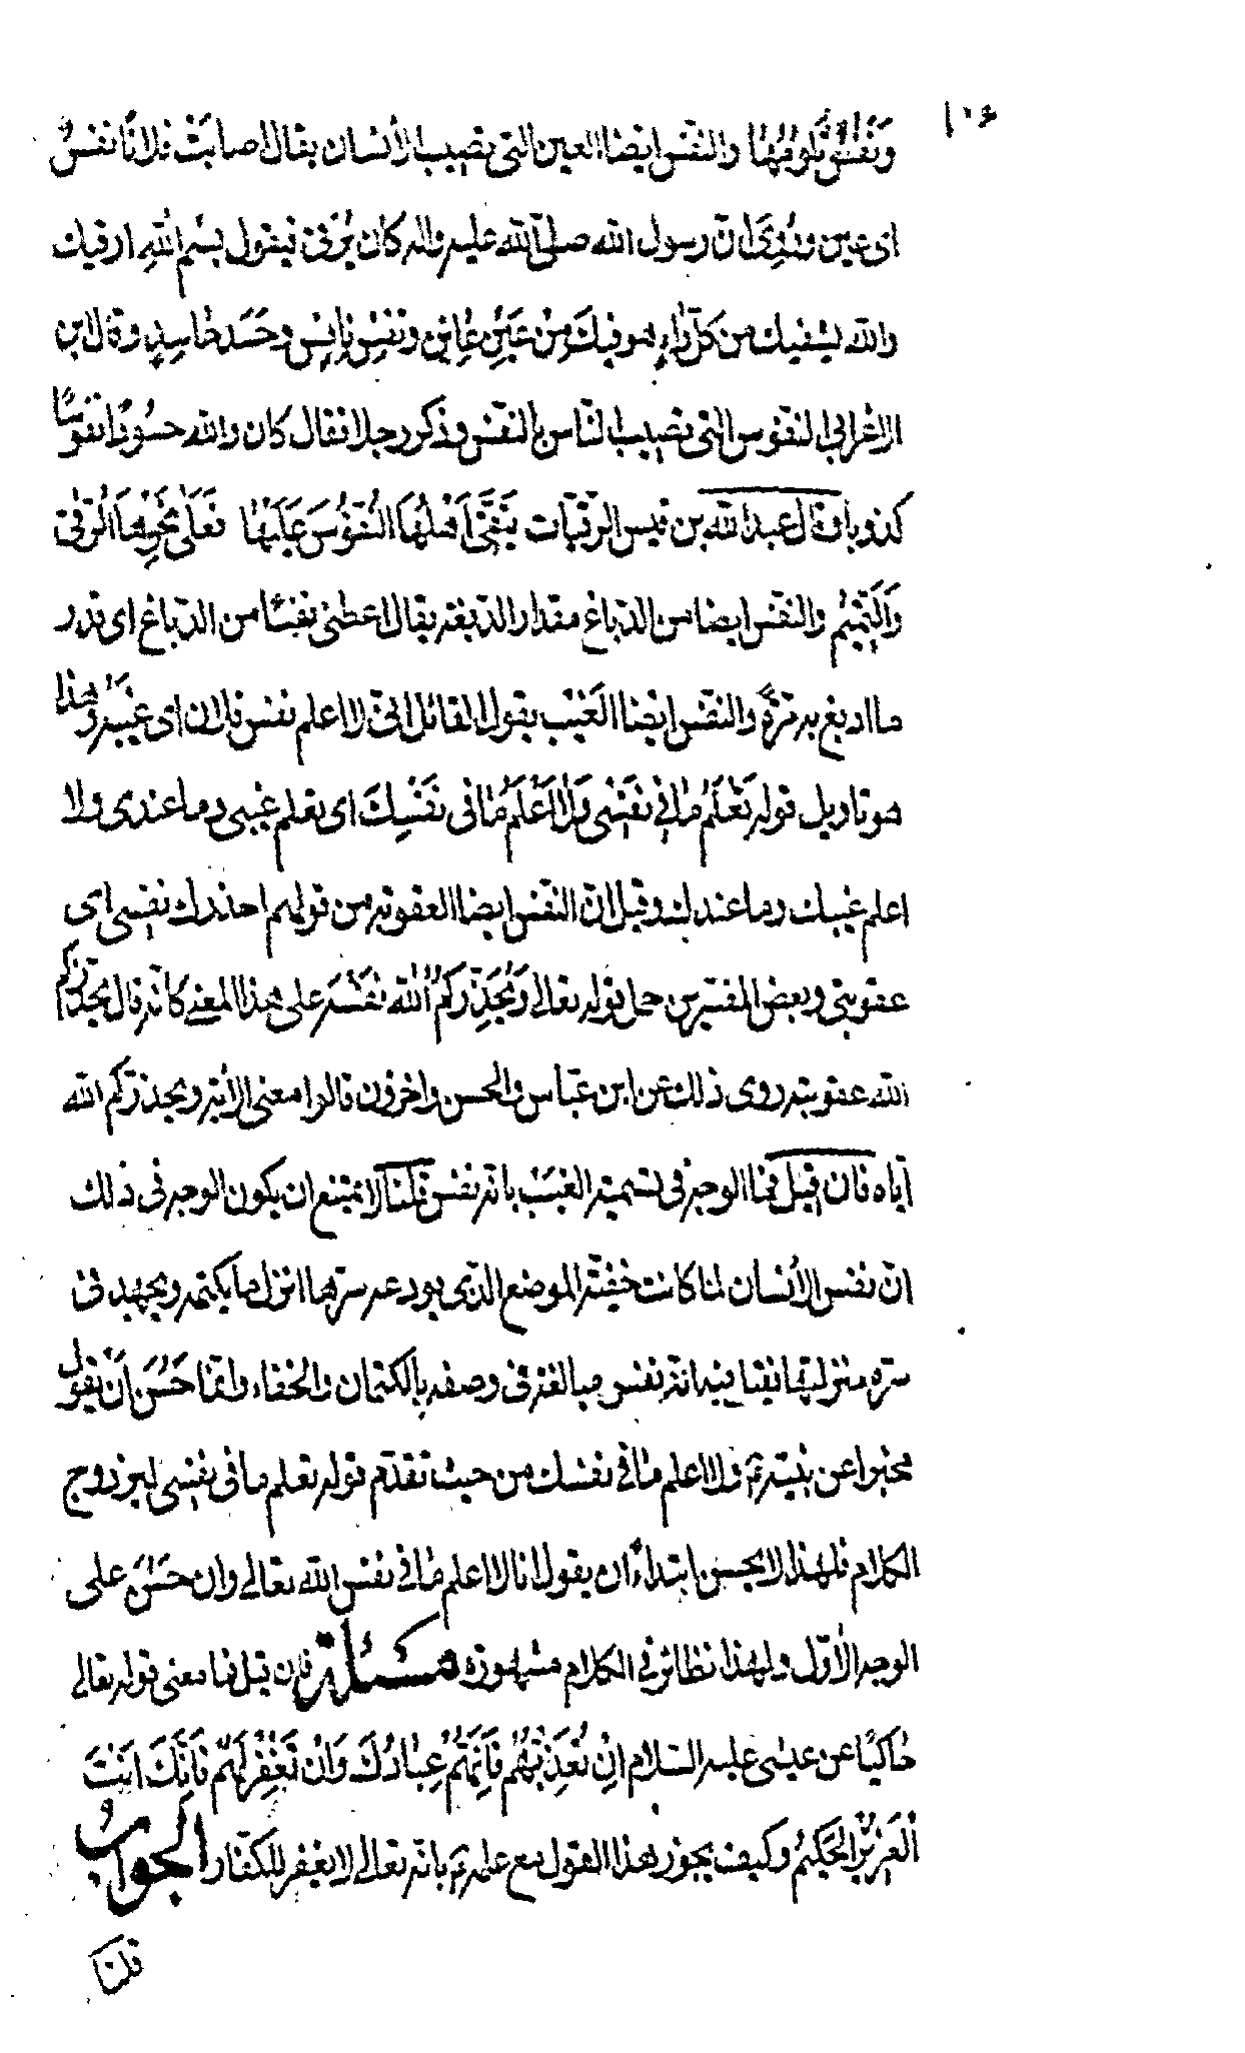 ١٠٤
ونفس تلومها والنفس ايضا العين التى تصيب الأنسان يقال اصابت فلانا نفس
اى عين وَرُوِىَ ان رسول الله صلى الله عليه واله كان يرقى فيقول بسم الله ارقيك
والله يشفيك من كل داء هو فيك من عين عاين ونفس نافس وحسد حاسد وقال ابن
الاعرابى النفوس التى تصيب الناس بالنفس وذكر رجلا فقال كان والله حسودا نفوسا
كذوبا وقال عبدالله بن قيس الرقيات يَتَّقى اَهْلُهَا النُّفُوسَ عَلَيْهَا فَعَلى نحرها الرقى
وَالتَّميم والنفس ايضا من الدباغ مقدار الدبغة يقال اعطنى نفسا من الدباغ اى قدر
ما ادبغ به مرة والنفس ايضا الغَيْب يقول القائل انى لا اعلم نفس فلان اى غَيْبَه وهذا
هو تاويل قوله تَعْلَمُ مٰا فى نَفْسى وَلٰا اَعْلَمُ مٰا فى نَفْسِكَ اى تعلم غيبى وما عندى ولا
اعلم غيبك وما عندك وقيل ان النفس ايضا العقوبة من قولهم احذرك نفسى اى
عقوبتى وبعض المفسرين حمل قوله تعالى وَيُحَذِّرُكُمُ اللهُ نَفْسَه على هذا المعنى كانه قال يحذركم
الله عقوبته روى ذلك عن ابن عباس والحسن واخرون قالوا معنى الأية ويحذركم الله
اياه فان قيل فما الوجه فى تسمية الغيب بانه نفس قلنا لا يمتنع ان يكون الوجه فى ذلك
ان نفس الأنسان لما كانت خفية الموضع الذى يودعه سرها انزل ما يكتمه ويجهد فى
سره منزلتها فقيل فيه انه نفس مبالغة فى وصفه بالكتمان والخفاء وانما حَسُنَ ان يقول
مخبرا عن نبيه ولا اعلم مٰا فى نفسك من حيث تقدم قوله تعلم ما فى نفسى ليزدوج
الكلام فلهذا لا يحسن ابتداءً ان يقول انا لا اعلم مٰا فى نفس الله تعالى وان حَسُنَ على
الوجه الأول ولهذا نظائر فى الكلام مشهورة مسئلة فان قيل فما معنى قوله تعالى
حٰاكيًا عن عيسى عليه السلام اِنْ تُعَذِّبْهُمْ فَاِنَّهُمْ عِبٰادُكَ وَاِنْ تَغْفِرْ لَهُمْ فَاِنَّكَ اَنْتَ
الْعَزيزُ الْحَكيمُ وكيف يجوز هذا القول مع علمه بانه تعالى لا يغفر للكفار الجواب
قلنا